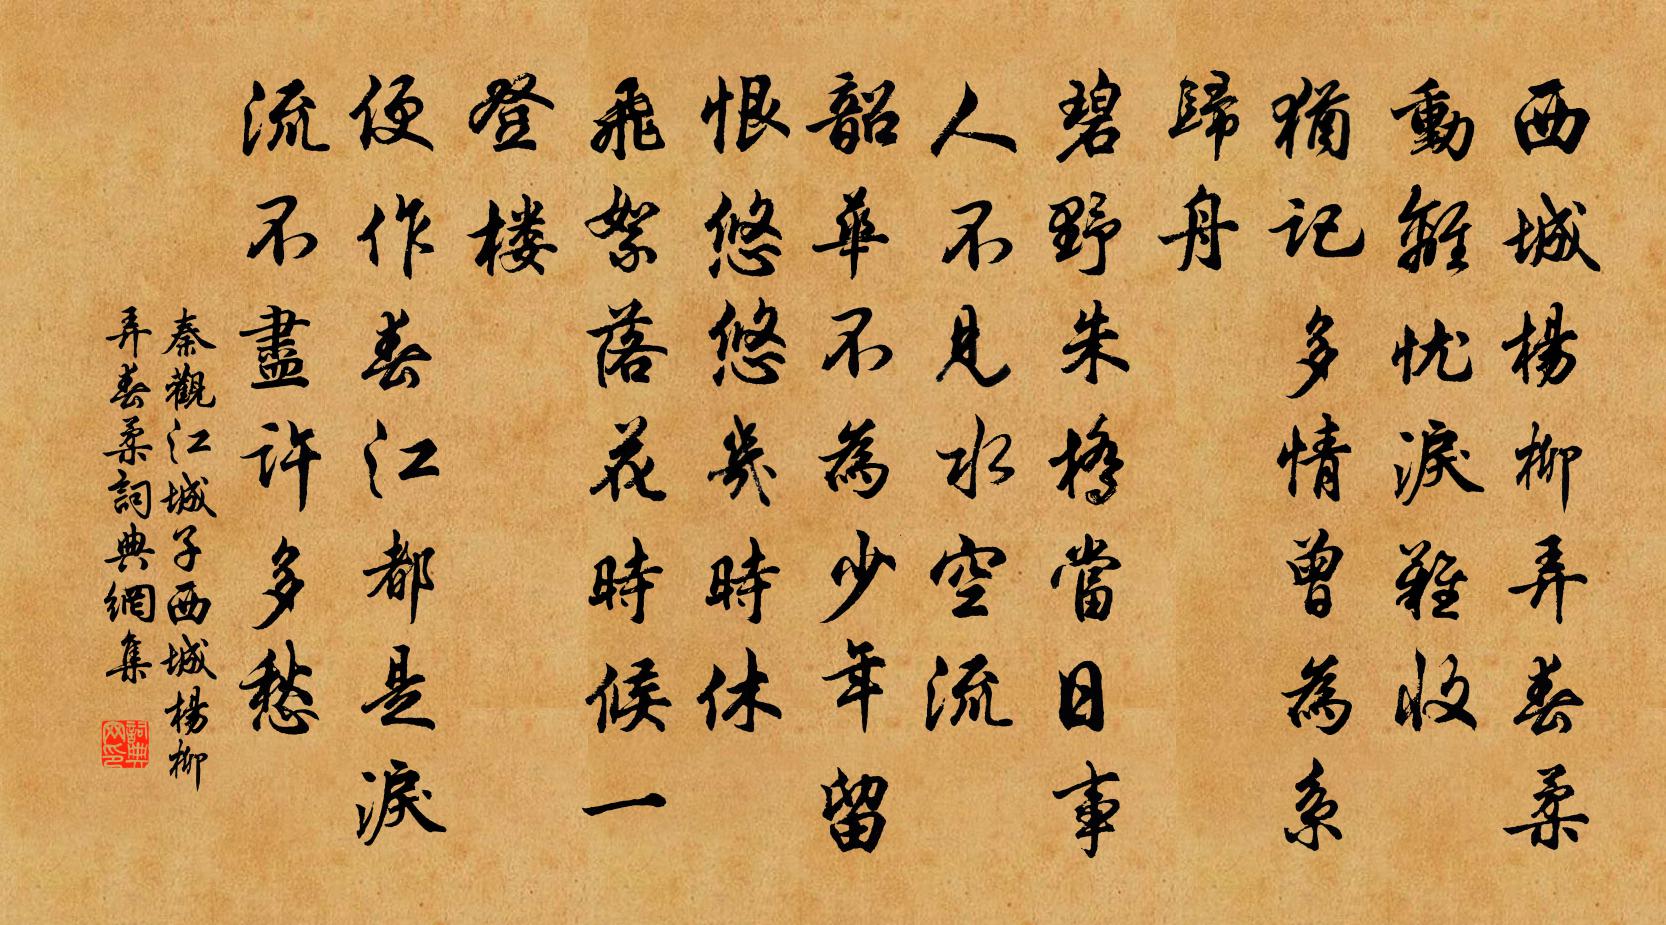 西城楊柳弄春柔
動離忧淚難收
猶記多情曾為系
歸舟
碧野朱橋當日事
人不見水空流
韶華不為少年留
恨悠悠幾時休
飛絮落花時候一
登楼
便作春江都是淚
流不盡許多愁
秦觀江城子西城楊柳
弄春柔詞典網集
詞典
网印